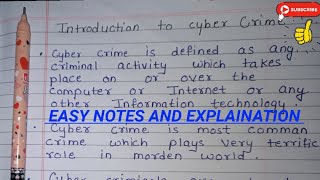 SUBSCRIBE
Introduction to cyber Crime.
• Cyber crime is defined as any
criminal activity which takes
place on or over the
computer or Internet or any
other Information technology.
EASY NOTES AND EXPLAINATION
• Cyber crime is most comman
crime which plays very terrific
role in morden world.